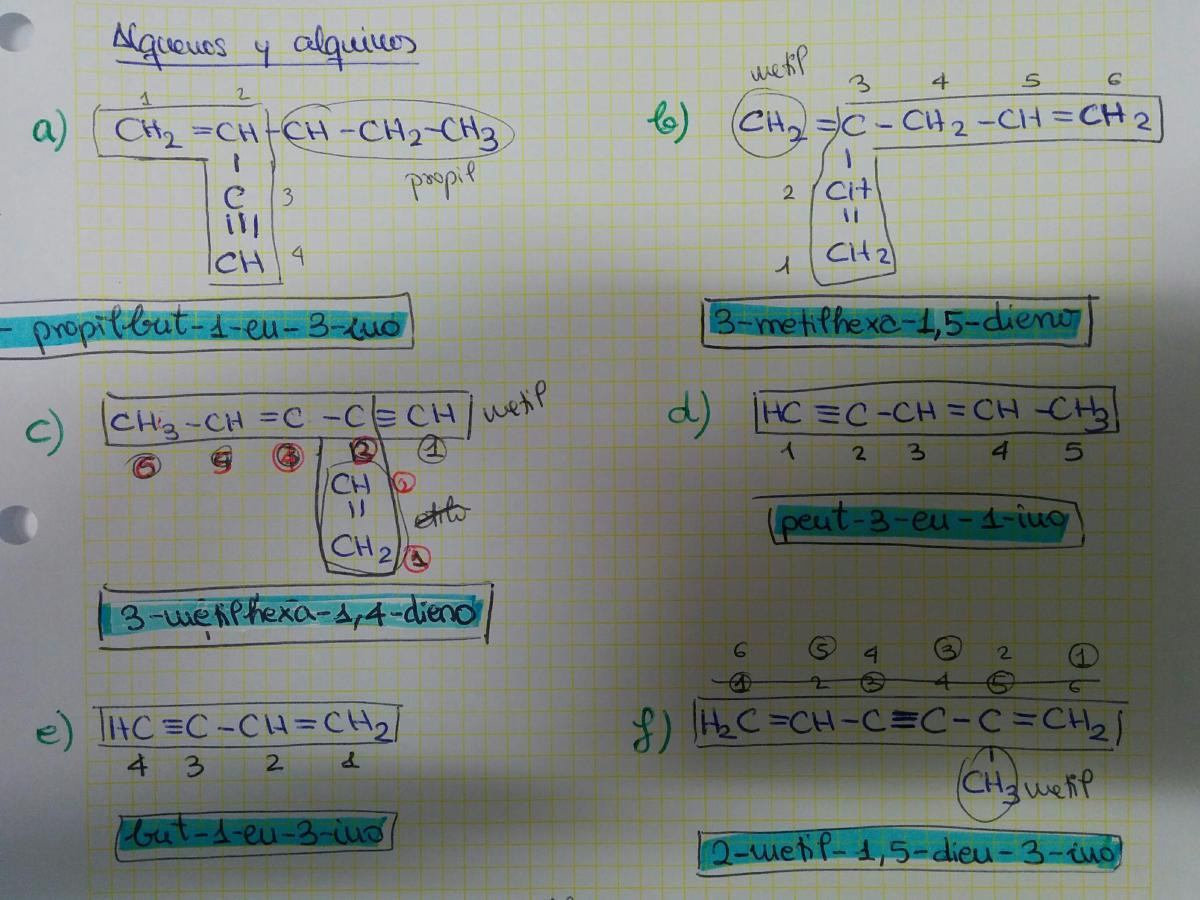 Alquenos y alquinos
a)
1 2
CH2 = CH - CH - CH2 - CH3
propil
C 3
|||
CH 4
- propilbut-1-en-3-ino
b)
metil 3 4 5 6
CH2 = C - CH2 - CH = CH2
2 CH
||
1 CH2
3-metilhexa-1,5-dieno
c)
CH3 - CH = C - C ≡ CH metil
5 4 3 2 1
CH 2
||
CH2 1
3-metilhexa-1,4-dieno
d)
HC ≡ C - CH = CH - CH3
1 2 3 4 5
pent-3-en-1-ino
e)
HC ≡ C - CH = CH2
4 3 2 1
but-1-en-3-ino
f)
6 5 4 3 2 1
1 2 3 4 5 6
H2C = CH - C ≡ C - C = CH2
CH3 metil
2-metil-1,5-dien-3-ino